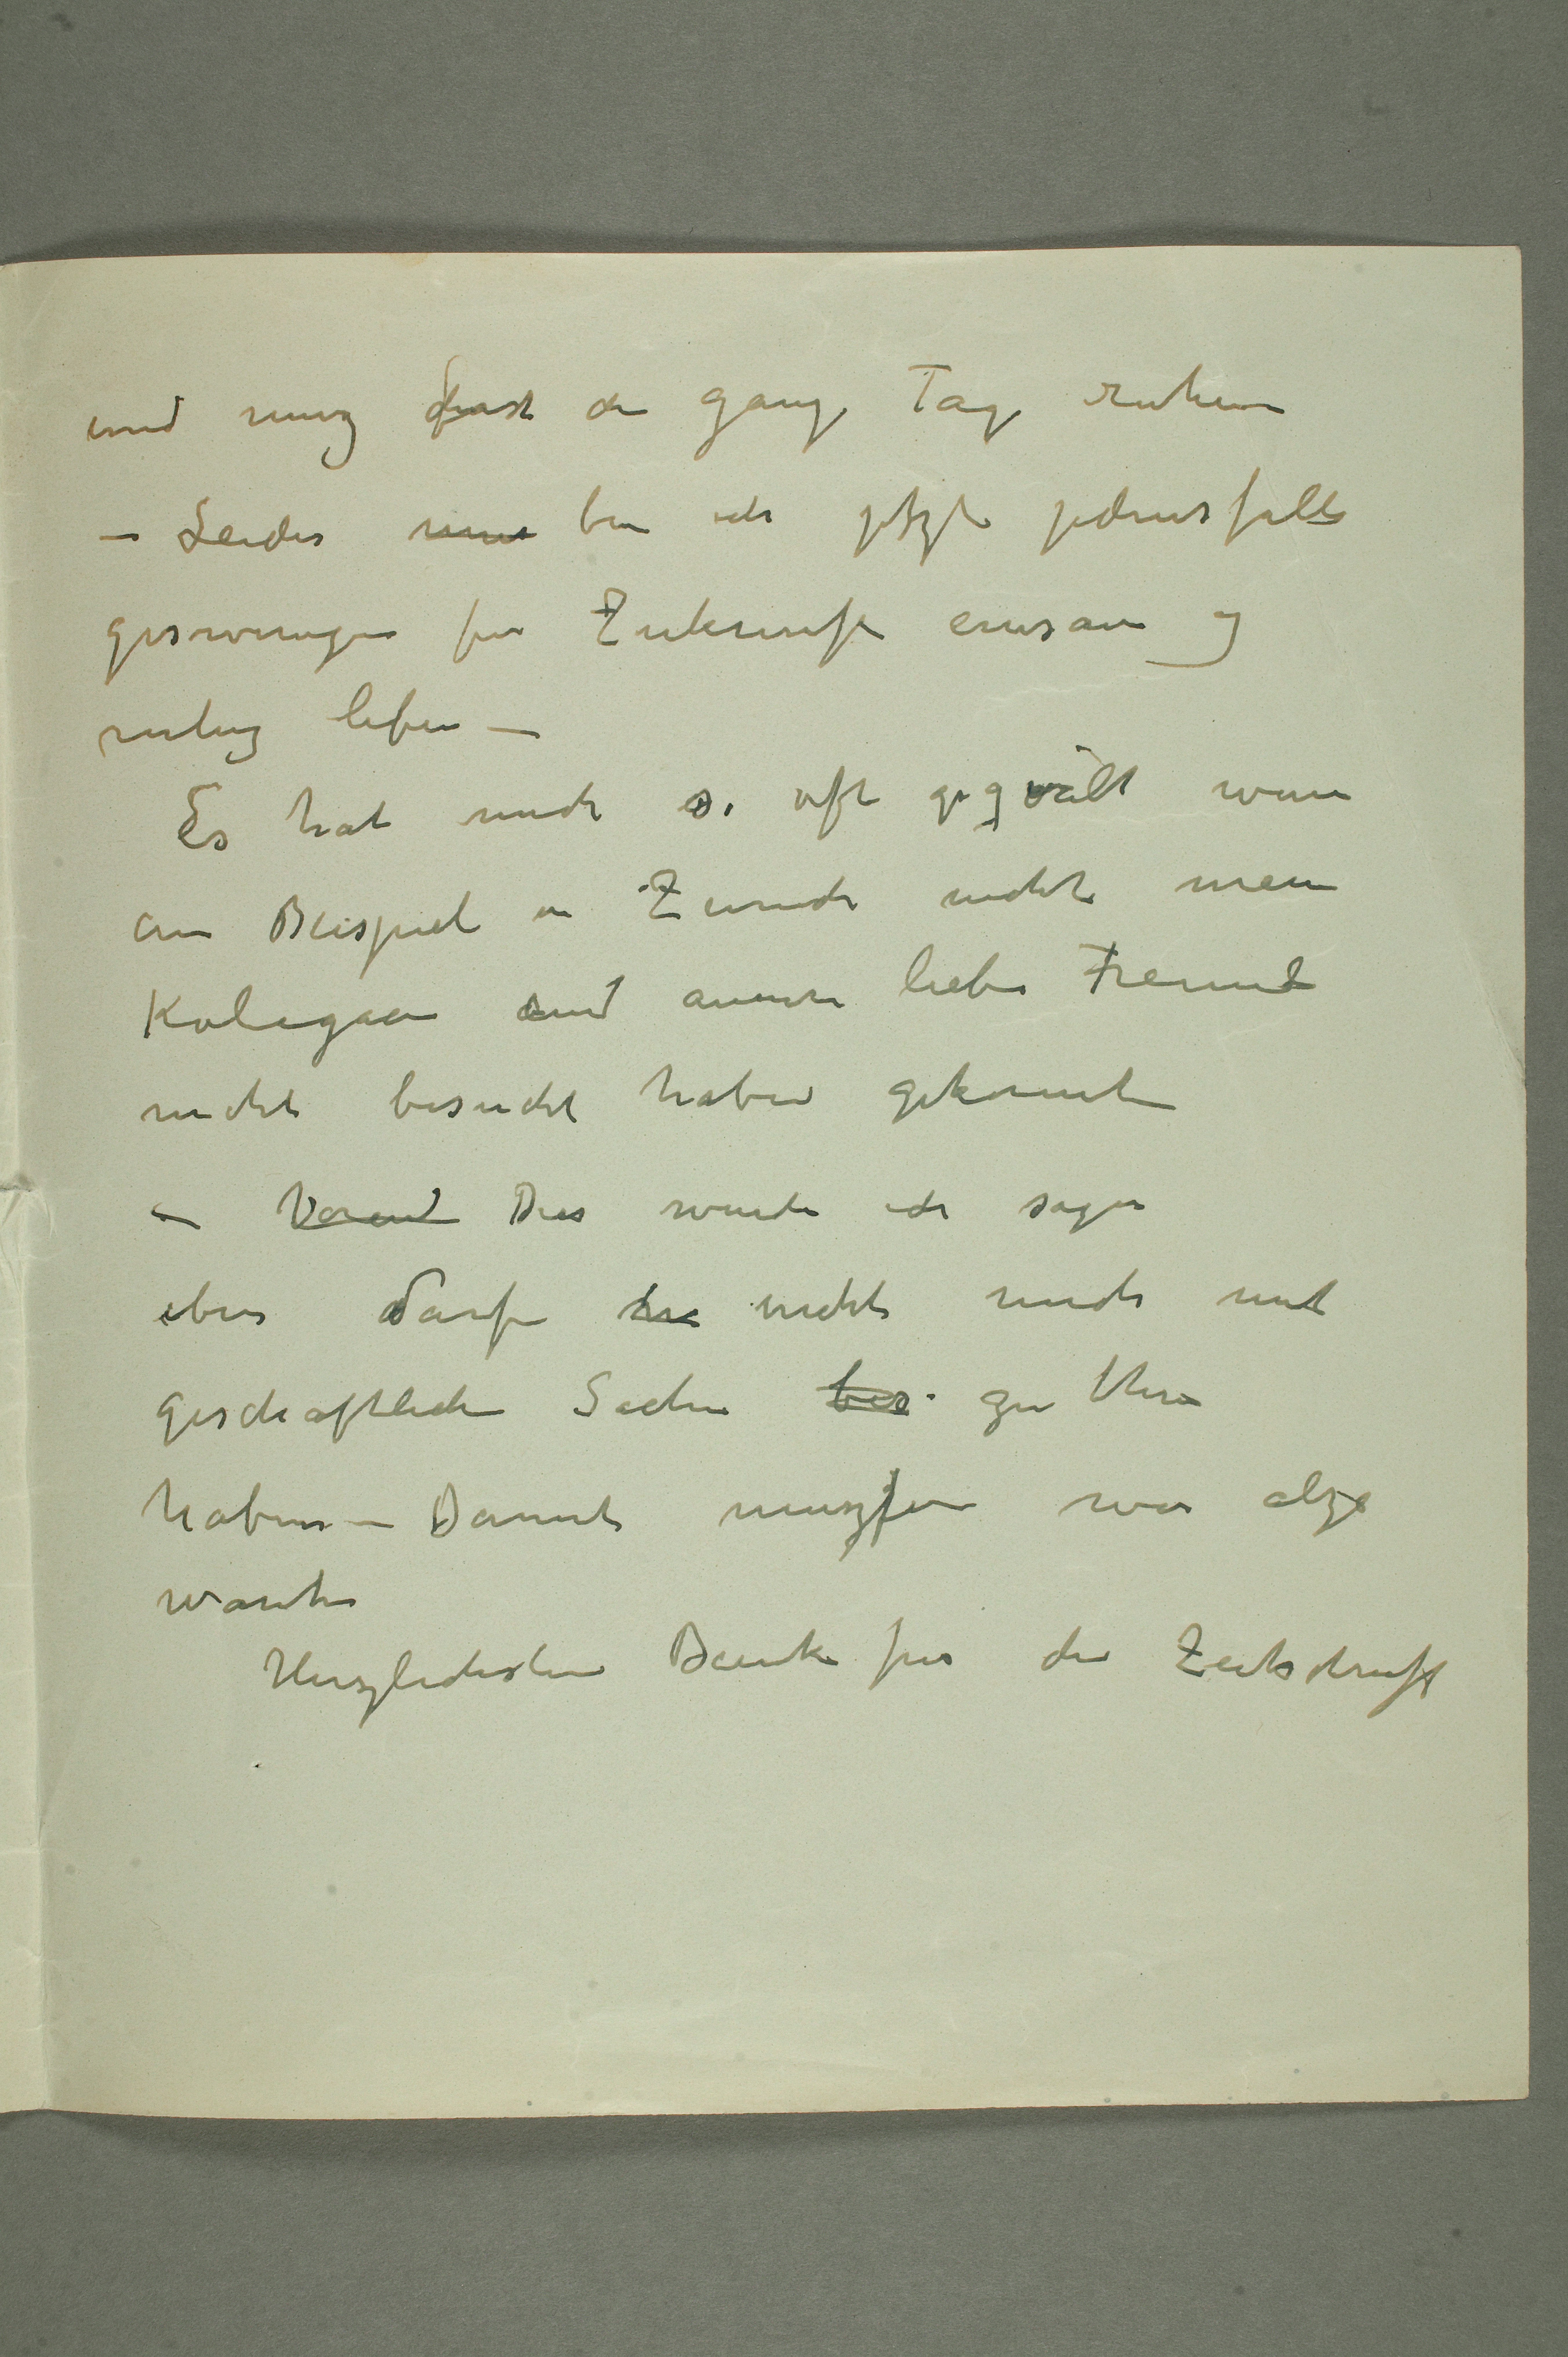 und muz fast den ganze Tag ruhen
– Leider muss bin ich jetzt jedensfalls
geswungen fur Zukunft einsam og
ruhig leben –
Es hat mich so oft gequält wenn
am Beispiel in Zürich nicht mein
Kolegaen und andere liebe Freunde
nicht besucht haben gekonnt
– Dies wurde ich sagen
aber darf nicht mich mit
geschäftlichen Sachen bes zu thun
haben – Damit muzfen wir alzo
warten
Herzlichsten Dank fur die Zeitschrift